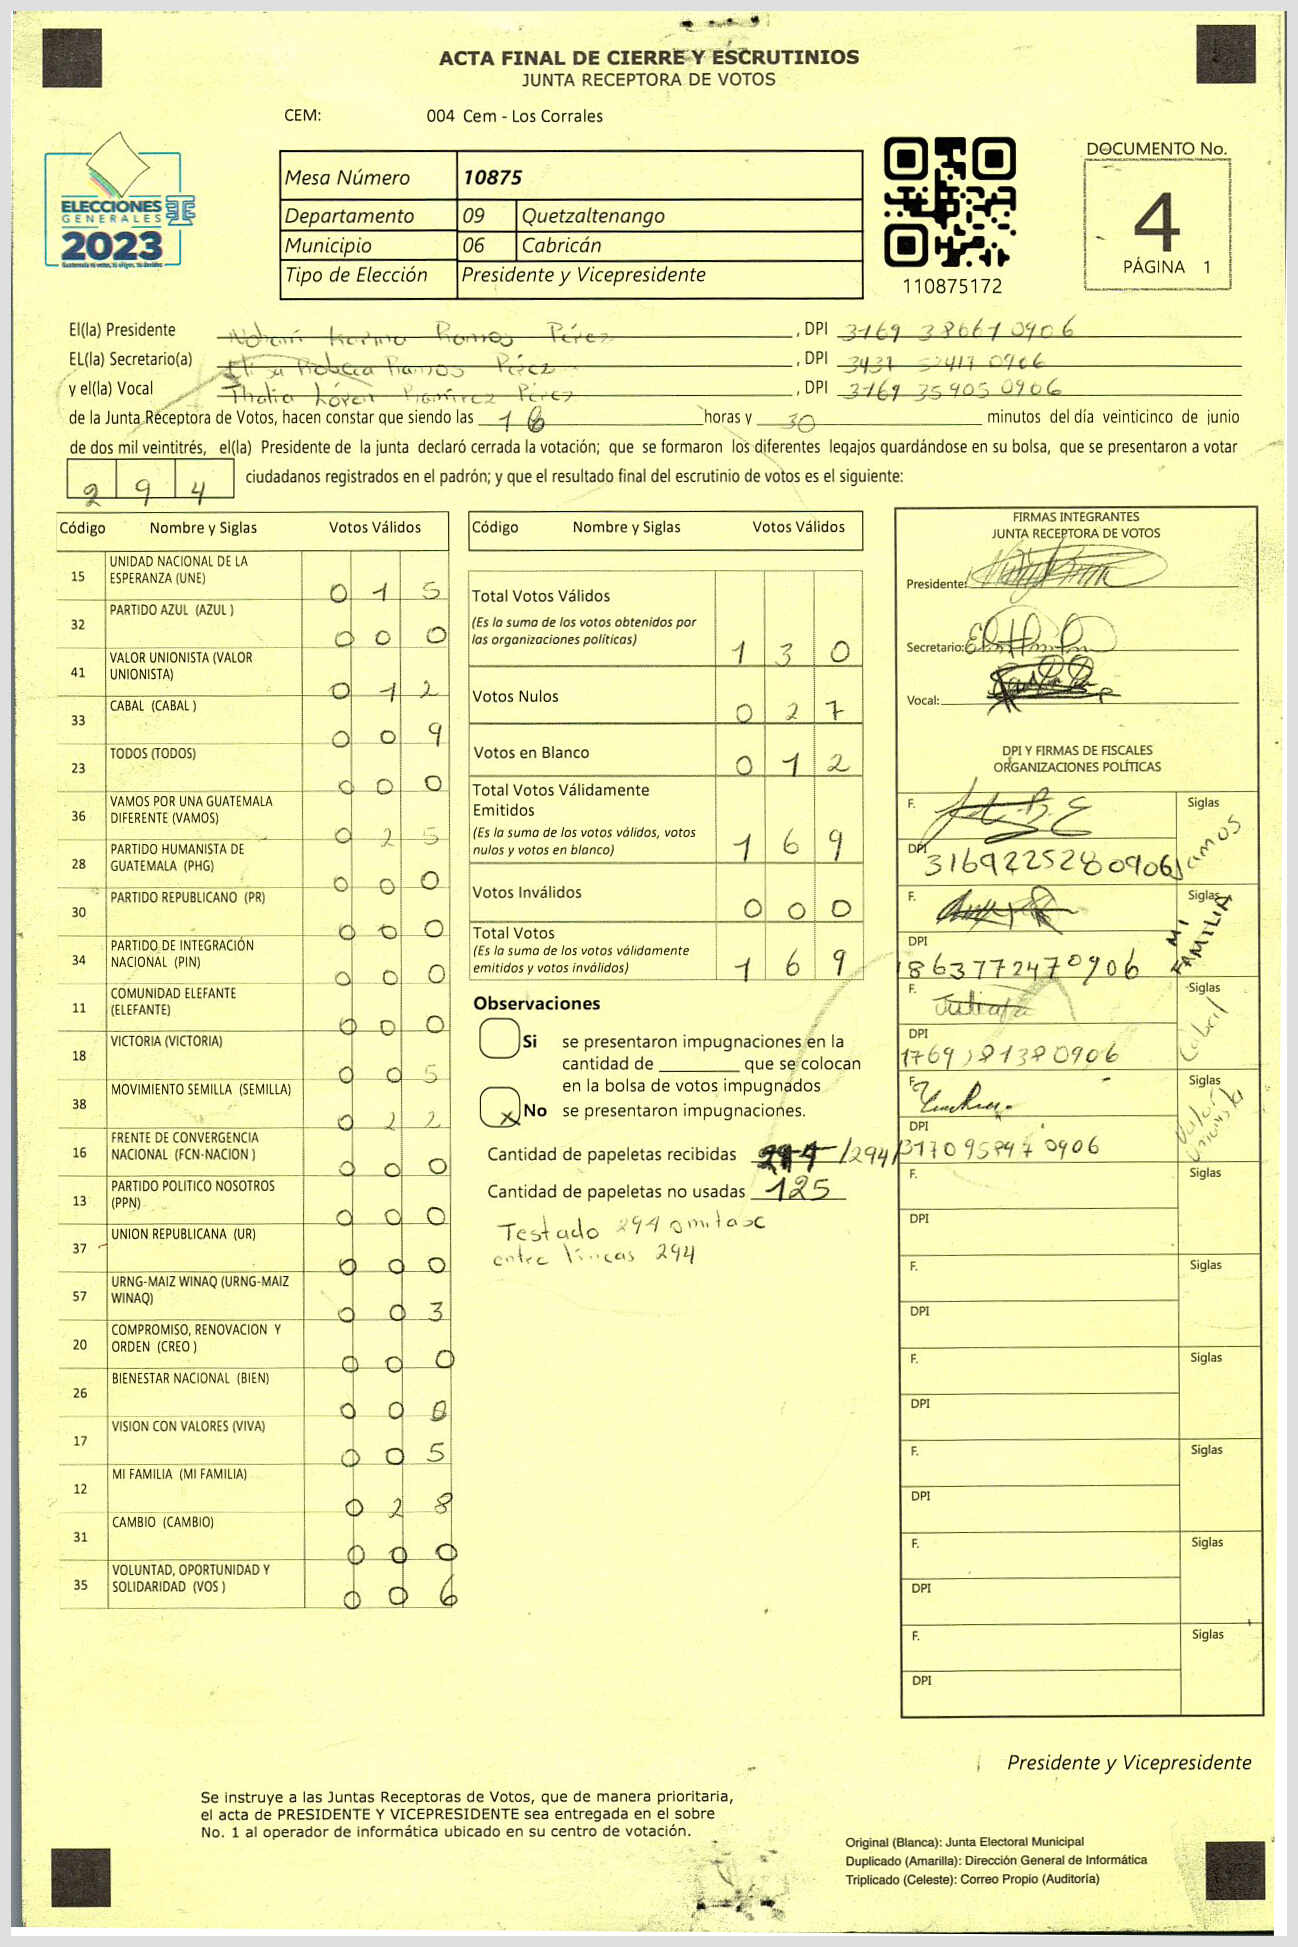 ACTA FINAL DE CIERRE Y ESCRUTINIOS
JUNTA RECEPTORA DE VOTOS
CEM: 004 Cem - Los Corrales
ELECCIONES
GENERALES
2023
Mesa Número 10875
Departamento 09 Quetzaltenango
Municipio 06 Cabricán
Tipo de Elección Presidente y Vicepresidente
110875172
DOCUMENTO No.
4
PÁGINA 1
El(la) Presidente Karina Ramos Pérez, DPI 3169 38661 0906
EL(la) Secretario(a) Ramos Pérez, DPI 0906
y el(la) Vocal Thalia Ramírez Pérez, DPI 3169 35905 0906
de la Junta Receptora de Votos, hacen constar que siendo las 18 horas y 30 minutos del día veinticinco de junio
de dos mil veintitrés, el(la) Presidente de la junta declaró cerrada la votación; que se formaron los diferentes legajos guardándose en su bolsa, que se presentaron a votar
294 ciudadanos registrados en el padrón; y que el resultado final del escrutinio de votos es el siguiente:
Código Nombre y Siglas Votos Válidos
15 UNIDAD NACIONAL DE LA ESPERANZA (UNE) 015
32 PARTIDO AZUL (AZUL ) 000
41 VALOR UNIONISTA (VALOR UNIONISTA) 012
33 CABAL (CABAL ) 009
23 TODOS (TODOS) 000
36 VAMOS POR UNA GUATEMALA DIFERENTE (VAMOS) 025
28 PARTIDO HUMANISTA DE GUATEMALA (PHG) 000
30 PARTIDO REPUBLICANO (PR) 000
34 PARTIDO DE INTEGRACIÓN NACIONAL (PIN) 000
11 COMUNIDAD ELEFANTE (ELEFANTE) 000
18 VICTORIA (VICTORIA) 005
38 MOVIMIENTO SEMILLA (SEMILLA) 022
16 FRENTE DE CONVERGENCIA NACIONAL (FCN-NACION ) 000
13 PARTIDO POLITICO NOSOTROS (PPN) 000
37 UNION REPUBLICANA (UR) 000
57 URNG-MAIZ WINAQ (URNG-MAIZ WINAQ) 003
20 COMPROMISO, RENOVACION Y ORDEN (CREO ) 000
26 BIENESTAR NACIONAL (BIEN) 000
17 VISION CON VALORES (VIVA) 005
12 MI FAMILIA (MI FAMILIA) 028
31 CAMBIO (CAMBIO) 000
35 VOLUNTAD, OPORTUNIDAD Y SOLIDARIDAD (VOS ) 006
Código Nombre y Siglas Votos Válidos
Total Votos Válidos 130
(Es la suma de los votos obtenidos por
las organizaciones políticas)
Votos Nulos 027
Votos en Blanco 012
Total Votos Válidamente
Emitidos 169
(Es la suma de los votos válidos, votos
nulos y votos en blanco)
Votos Inválidos 000
Total Votos 169
(Es la suma de los votos válidamente
emitidos y votos inválidos)
Observaciones
Si se presentaron impugnaciones en la
cantidad de ________ que se colocan
en la bolsa de votos impugnados
X No se presentaron impugnaciones.
Cantidad de papeletas recibidas 294 /294/
Cantidad de papeletas no usadas 125
Testado 294 omitase
entre lineas 294
FIRMAS INTEGRANTES
JUNTA RECEPTORA DE VOTOS
Presidente:
Secretario:
Vocal:
DPI Y FIRMAS DE FISCALES
ORGANIZACIONES POLÍTICAS
F. Siglas Vamos
DPI 3169225280906
F. Siglas MI FAMILIA
DPI 1863772470906
F. Siglas Cabal
DPI 1769 81380906
F. Siglas Valor Unionista
DPI 0906
F. Siglas
DPI
F. Siglas
DPI
F. Siglas
DPI
F. Siglas
DPI
F. Siglas
DPI
F. Siglas
DPI
Presidente y Vicepresidente
Se instruye a las Juntas Receptoras de Votos, que de manera prioritaria,
el acta de PRESIDENTE Y VICEPRESIDENTE sea entregada en el sobre
No. 1 al operador de informática ubicado en su centro de votación.
Original (Blanca): Junta Electoral Municipal
Duplicado (Amarilla): Dirección General de Informática
Triplicado (Celeste): Correo Propio (Auditoría)